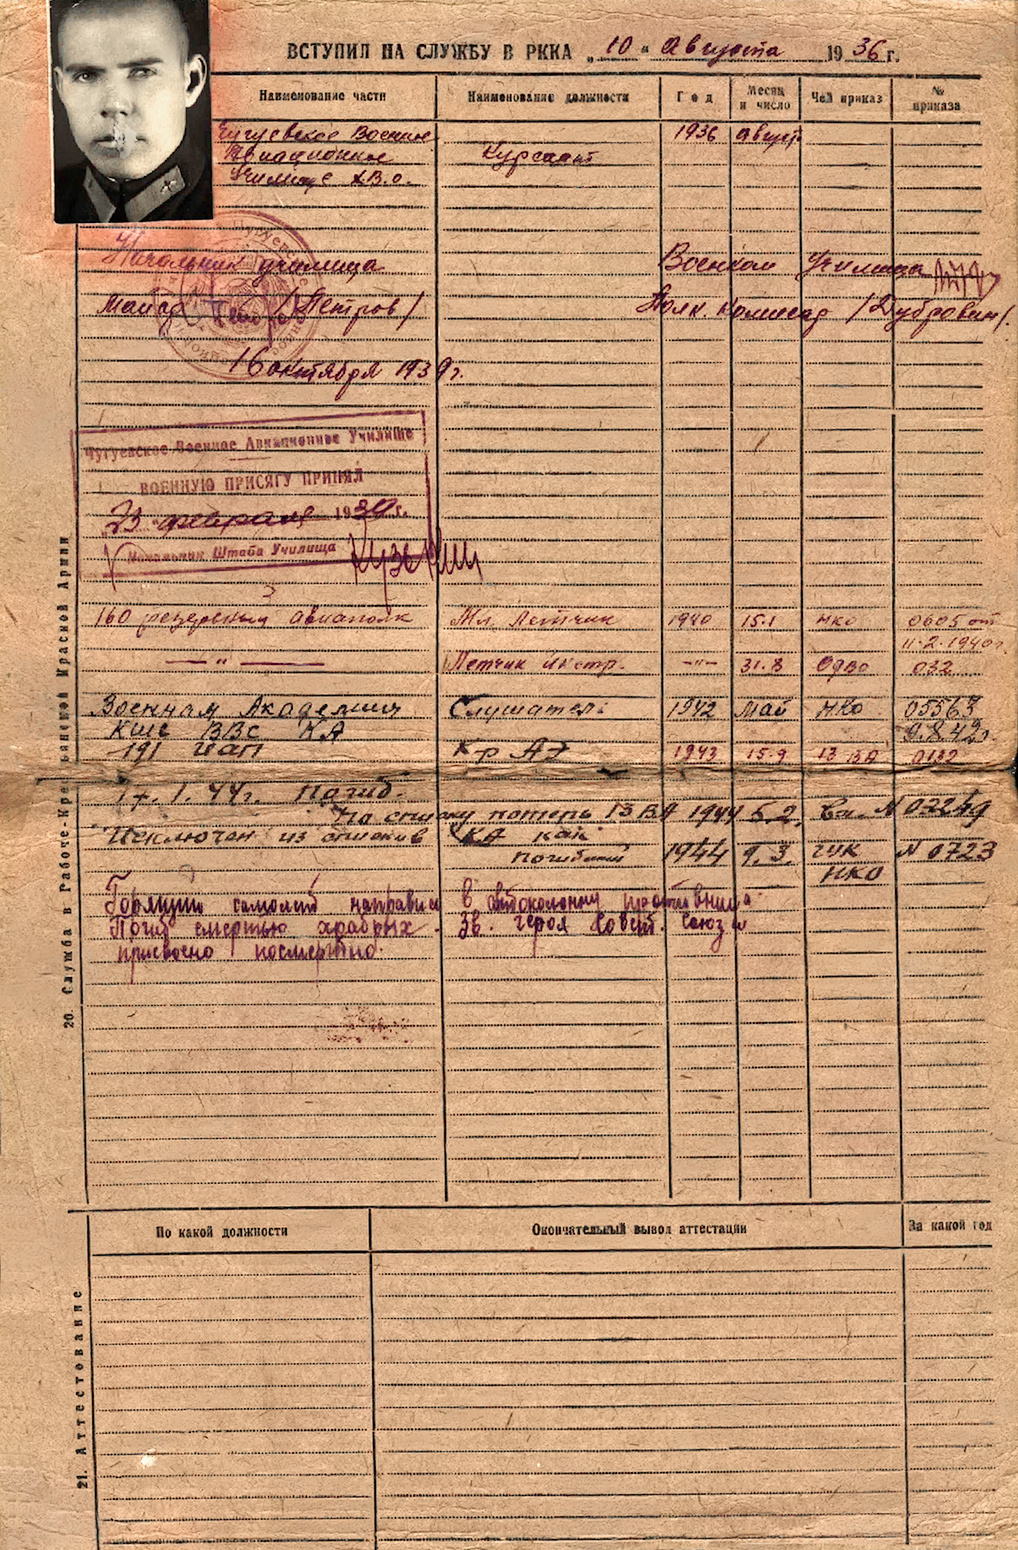 ВСТУПИЛ НА СЛУЖБУ В РККА „ 10 " Августа 1936 г.
Наименование части Наименование должности Год Месяц и число Чей приказ № приказа
Чугуевское Военное 1936 август
Авиационное Курсант
Училище ХВО.
Начальник училища Военком Училища
Майор /Петров/ Полк. Комиссар /Дубровин/.
16 октября 1939г.
Чугуевское Военное Авиационное Училище
ВОЕННУЮ ПРИСЯГУ ПРИНЯЛ
23 февраля 1939 г.
Начальник Штаба Училища
160 резервный авиаполк Мл. Летчик 1940 15.1 НКО 0605 от
11.2.1940г.
— " — Летчик инстр. -"- 31.8 ОдВО 032
Военная Академия Слушатель 1942 Май НКО 05563
КШС ВВС КА 9.8.42г.
191 ИАП К-р АЭ 1943 15.9 13 ВА 0132
17.1.44г. Погиб.
По списку потерь 13 ВА 1944 5.2. Вх. N 03249
Исключен из списков КА как
погибший 1944 9.3. ГУК N 0723
НКО
Горящий самолет направил в автоколонну противника.
Погиб смертью храбрых. Зв. героя Совет. Союза
присвоено посмертно.
20. Служба в Рабоче-Крестьянской Красной Армии
По какой должности Окончательный вывод аттестации За какой год
21. Аттестование